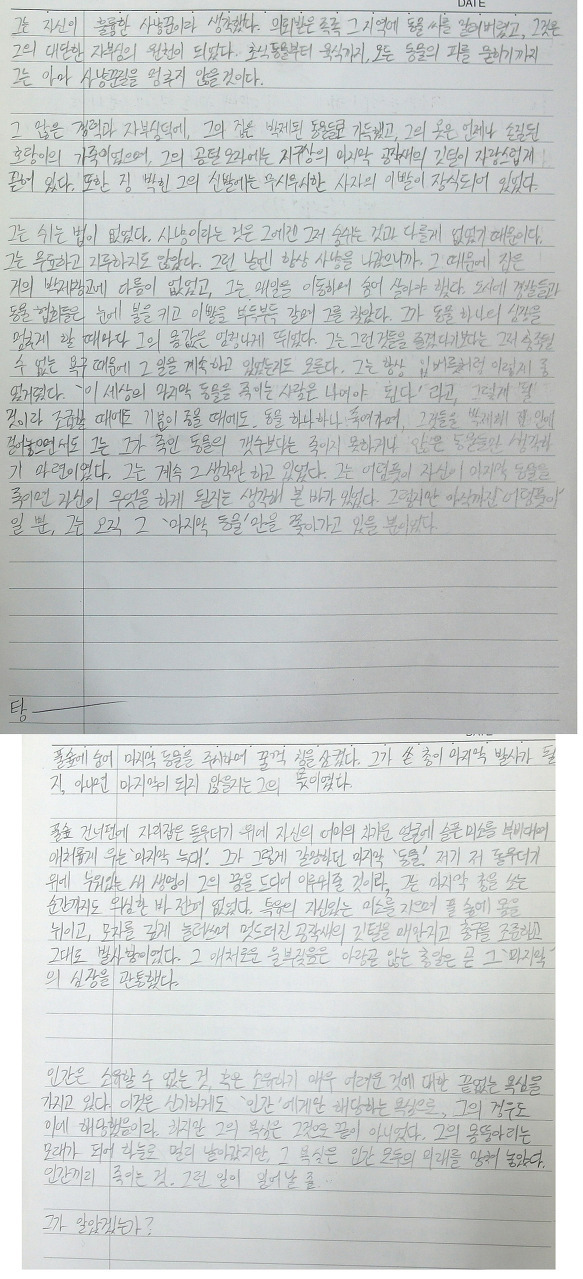 DATE
그는 자신이 훌륭한 사냥꾼이라 생각했다. 의뢰받은 족족 그 지역에 동물 씨를 말려버렸고, 그것은
그의 대단한 자부심의 원천이 되었다. 초식동물부터 육식까지, 모든 동물의 피를 묻히기까지
그는 아마 사냥꾼질을 멈추지 않을 것이다.
그 많은 경력과 자부심덕에, 그의 집은 박제된 동물들로 가득했고, 그의 옷은 언제나 손질된
호랑이의 가죽이었으며, 그의 공단 모자에는 지구상의 마지막 공작새의 깃털이 자랑스럽게
꽂혀 있다. 또한 징 박힌 그의 신발에는 무시무시한 사자의 이빨이 장식되어 있었다.
그는 쉬는 법이 없었다. 사냥이라는 것은 그에겐 그저 숨쉬는 것과 다를게 없었기 때문이다.
그는 무료하고 지루하지도 않았다. 그런 날엔 항상 사냥을 나갔으니까. 그 때문에 집은
거의 박제창고에 다름이 없었고, 그는 매일을 이동하며 숨어 살아야 했다. 도시에 경찰들과
동물 협회들은 눈에 불을 키고 이빨을 부득부득 갈며 그를 찾았다. 그가 동물 하나의 심장을
멈추게 할 때마다 그의 몸값은 엄청나게 뛰었다. 그는 그런 것들을 즐겼다기보다는 그저 충족될
수 없는 욕구 때문에 그 일을 계속하고 있었는지도 모른다. 그는 항상 입버릇처럼 이렇게 중
얼거렸다. '이 세상의 마지막 동물을 죽이는 사람은 나여야 된다' 라고, 그렇게 될
것이라 조급할 때에도 기분이 좋을 때에도. 동물 하나하나 죽여가며, 그것들을 박제해 집 안에
걸어놓으면서도 그는 그가 죽인 동물의 갯수보다는 죽이지 못하거나 않은 동물들만 생각하
기 마련이었다. 그는 계속 그 생각만 하고 있었다. 그는 어렴풋이 자신이 마지막 동물을
죽이면 자신이 무엇을 하게 될지는 생각해 본 바가 있었다. 그렇지만 아직까진 '어렴풋이'
일 뿐, 그는 오직 그 '마지막 동물'만을 쫓아가고 있을 뿐이었다.
탕
DATE
풀숲에 숨어 마지막 동물을 주시하며 꿀꺽 침을 삼켰다. 그가 쏜 총이 마지막 발사가 될
지, 아니면 마지막이 되지 않을지는 그의 뜻이었다.
풀숲 건너편에 자리잡은 돌무더기 위에 자신의 어미의 차가운 얼굴에 슬픈 미소를 부비대며
애처롭게 우는 '마지막 늑대'! 그가 그렇게 갈망하던 마지막 '동물'. 저기 저 돌무더기
위에 누워있는 새 생명이 그의 꿈을 드디어 이루어줄 것이라, 그는 마지막 총을 쏘는
순간까지도 의심한 바 전혀 없었다. 특유의 자신있는 미소를 지으며 풀 숲에 몸을
뉘이고, 모자를 깊게 눌러쓰며 멋드러진 공작새의 깃털을 매만지고 총구를 조준하고
그대로 발사함이었다. 그 애처로운 울부짖음은 아랑곧 않는 총알은 곧 그 '마지막'
의 심장을 관통했다.
인간은 소유할 수 없는 것, 혹은 소유하기 매우 어려운 것에 대한 끝없는 욕심을
가지고 있다. 이것은 신기하게도 '인간'에게만 해당하는 욕심으로, 그의 경우도
이에 해당했음이라. 하지만 그의 욕심은 그것으로 끝이 아니었다. 그의 몸뚱아리는
모래가 되어 하늘로 멀리 날아갔지만, 그 욕심은 인간 모두의 미래를 망쳐 놓았다.
인간끼리 죽이는 것. 그런 일이 일어날 줄 ..
그가 알았겠는가?